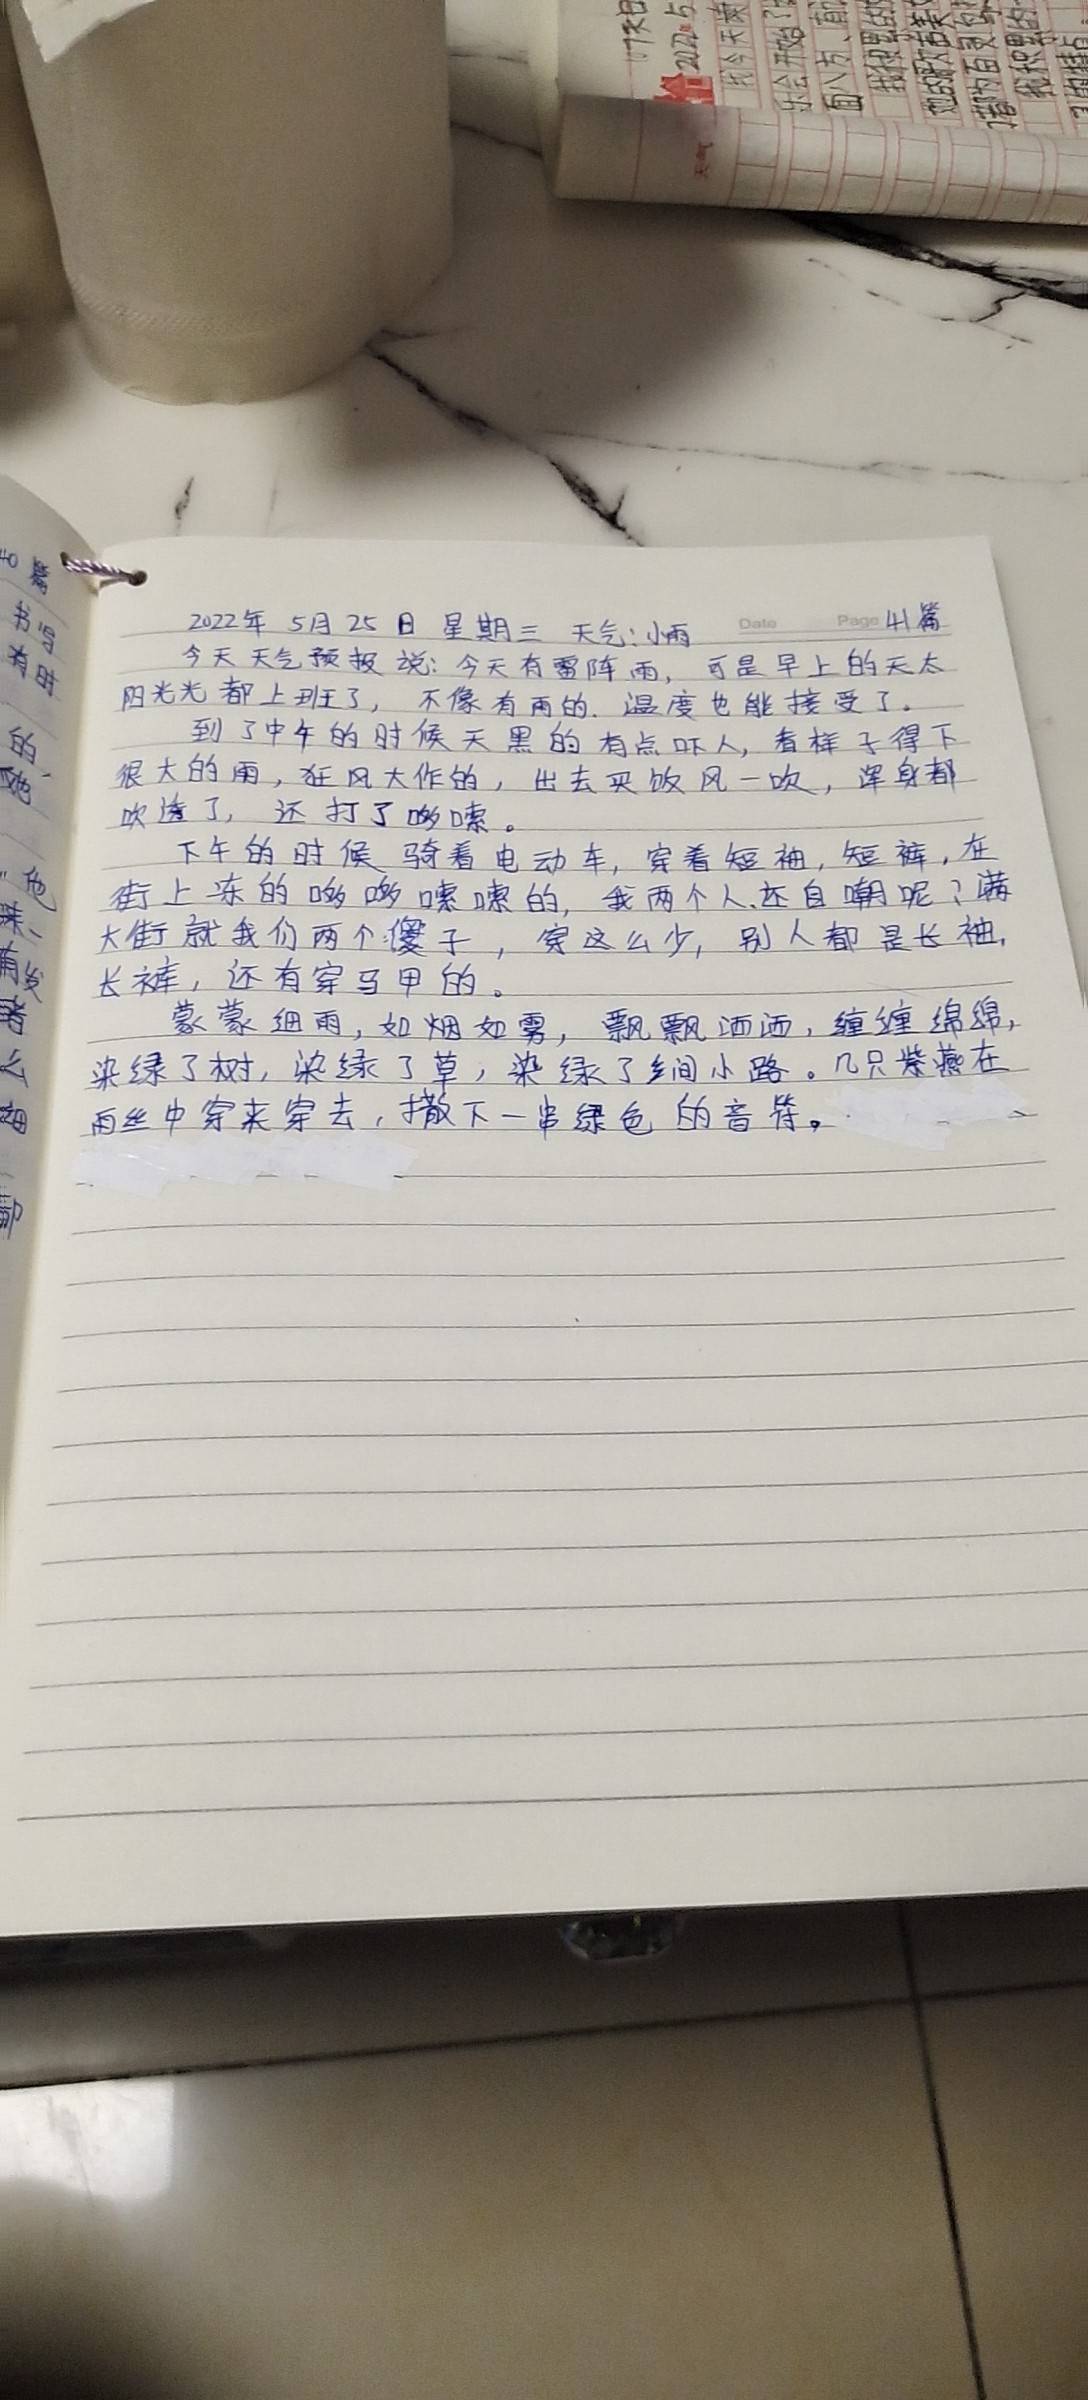 2022年 5月 25日 星期三 天气：小雨 Date Page 41篇
今天天气预报说：今天有雷阵雨，可是早上的天太
阳光光都上班了，不像有雨的．温度也能接受了．
到了中午的时候天黑的有点吓人，看样子得下
很大的雨，狂风大作的，出去买饭风一吹，浑身都
吹透了，还打了哆嗦。
下午的时候骑着电动车，穿着短袖，短裤，在
街上冻的哆哆嗦嗦的，我两个人还自嘲呢？满
大街就我们两个傻子，穿这么少，别人都是长袖，
长裤，还有穿马甲的。
蒙蒙细雨，如烟如雾，飘飘洒洒，缠缠绵绵，
染绿了树，染绿了草，染绿了乡间小路。几只紫燕在
雨丝中穿来穿去，撒下一串绿色的音符。
40篇
书写
有时
的，
她
他
珠
有发
者
么
细
2022.5
我今天
乐会开始了
面八方、